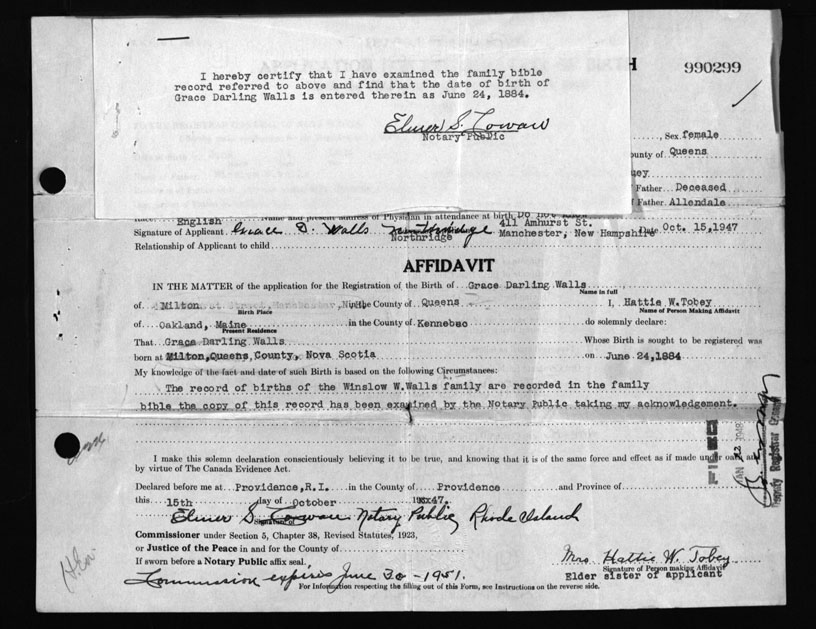 I hereby certify that I have examined the family bible
record referred to above and find that the date of birth of
Grace Darling Walls is entered therein as June 24, 1884.
Elmer S. Cowan
Notary Public
H 990299
, Sex female
ounty of Queens
uey
f Father Deceased
f Father Allendale
English Name and present address of Physician in attendance at birth Do not know
Signature of Applicant Grace D. Walls Northridge
Northridge
411 Amhurst St.
Manchester, New Hampshire Date Oct. 15, 1947
Relationship of Applicant to child
AFFIDAVIT
IN THE MATTER of the application for the Registration of the Birth of Grace Darling Walls
Name in full
of Milton in the County of Queens I, Hattie W. Tobey
Birth Place Name of Person Making Affidavit
of Oakland, Maine in the County of Kennebec do solemnly declare:
Present Residence
That Grace Darling Walls Whose Birth is sought to be registered was
born at Milton, Queens, County, Nova Scotia on June 24, 1884
My knowledge of the fact and date of such Birth is based on the following Circumstances:
The record of births of the Winslow W. Walls family are recorded in the family
bible the copy of this record has been examined by the Notary Public taking my acknowledgement.
I make this solemn declaration conscientiously believing it to be true, and knowing that it is of the same force and effect as if made under oath and
by virtue of The Canada Evidence Act.
Declared before me at Providence, R.I. in the County of Providence and Province of
this 15th day of October 193xx47.
Elmer S. Cowan Notary Public Rhode Island
Signature of
Commissioner under Section 5, Chapter 38, Revised Statutes, 1923,
or Justice of the Peace in and for the County of
If sworn before a Notary Public affix seal.
Mrs Hattie W. Tobey
Signature of Person making Affidavit
Elder sister of applicant
Commission expires June 30 - 1951.
For Information respecting the filling out of this Form, see Instructions on the reverse side.
FILED
JAN 22 1948
Deputy Registrar General